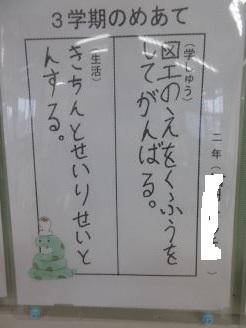 3学期のめあて
二年(
(学しゅう)
図工のえをくふうを
してがんばる。
(生活)
きちんとせいりせいと
んする。